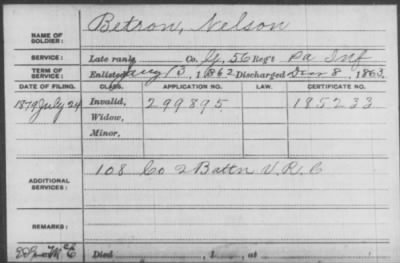 NAME OF SOLDIER: Betron, Nelson
SERVICE: Late rank Co. G, 56 Reg't Pa Inf
TERM OF SERVICE: Enlisted Aug 13, 1862 Discharged 8, 1863.
DATE OF FILING. CLASS. APPLICATION NO. LAW. CERTIFICATE NO.
1879 July 24 Invalid, 299895 185233
Widow,
Minor,
ADDITIONAL SERVICES: 108 Co 2 Battn V. R. C
REMARKS:
Died , 1 , at